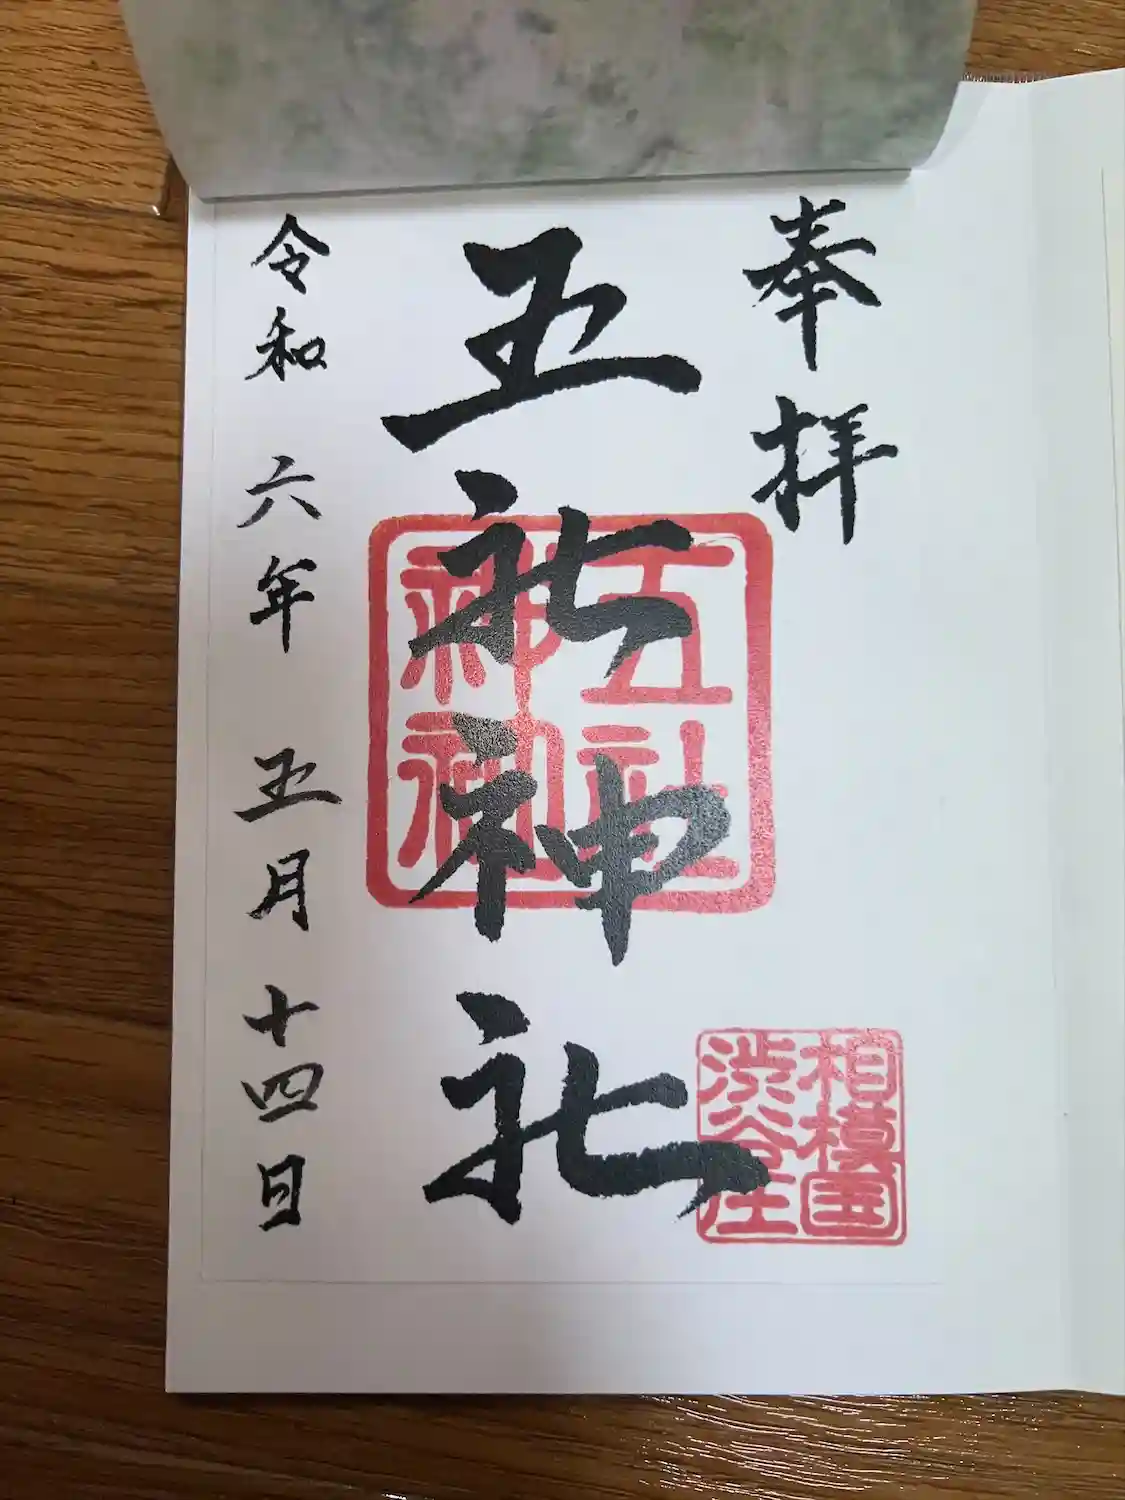 奉拝
五社神社
令和六年五月十四日
五社
神社
相模国
渋谷庄